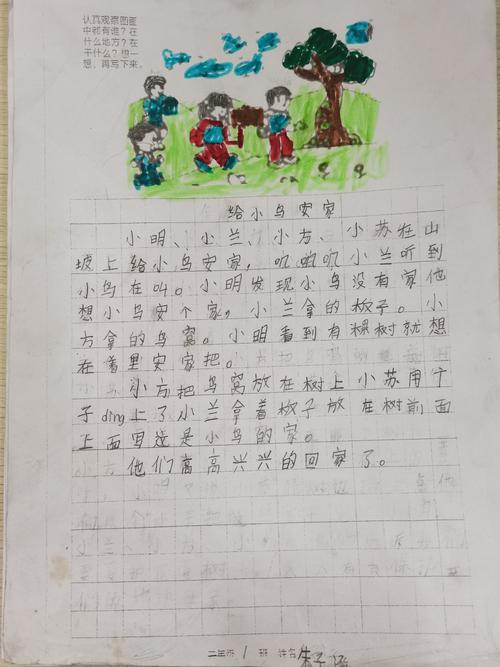 认真观察图画
中都有谁？在
什么地方？在
干什么？想一
想，再写下来。
给小鸟安家
小明、小兰、小方、小苏在山
坡上给小鸟安家，叽啊叽小兰听到
小鸟在叫。小明发现小鸟没有家他
想小鸟安个家，小兰拿的板子。小
方拿的鸟窝。小明看到有棵树就想
在着里安家把。
小方把鸟窝放在树上小苏用个
子ding上了小兰拿着板子放在树前面
上面写这是小鸟的家。
他们高高兴兴的回家了。
二年级 1 班 姓名 朱子